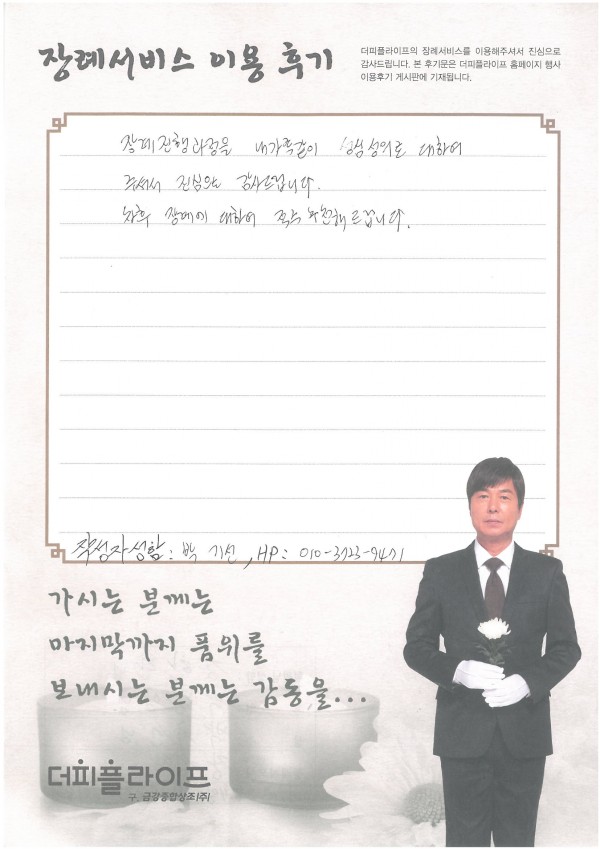 장례서비스 이용 후기
더피플라이프의 장례서비스를 이용해주셔서 진심으로
감사드립니다. 본 후기문은 더피플라이프 홈페이지 행사
이용후기 게시판에 기재됩니다.
장례진행과정을 내가족같이 성심성의로 대하여
주셔서 진심으로 감사드립니다.
차후 장례에 대하여 적극 추천해드립니다.
작성자성함: 박 기선, HP: 010-3723-9471
가시는 분께는
마지막까지 품위를
보내시는 분께는 감동을...
더피플라이프
구. 금강종합상조(주)